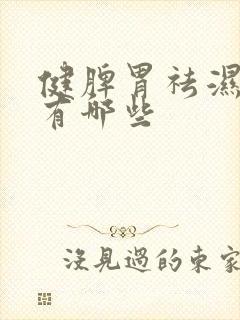 健脾胃祛濕
有哪些
沒見過的東家